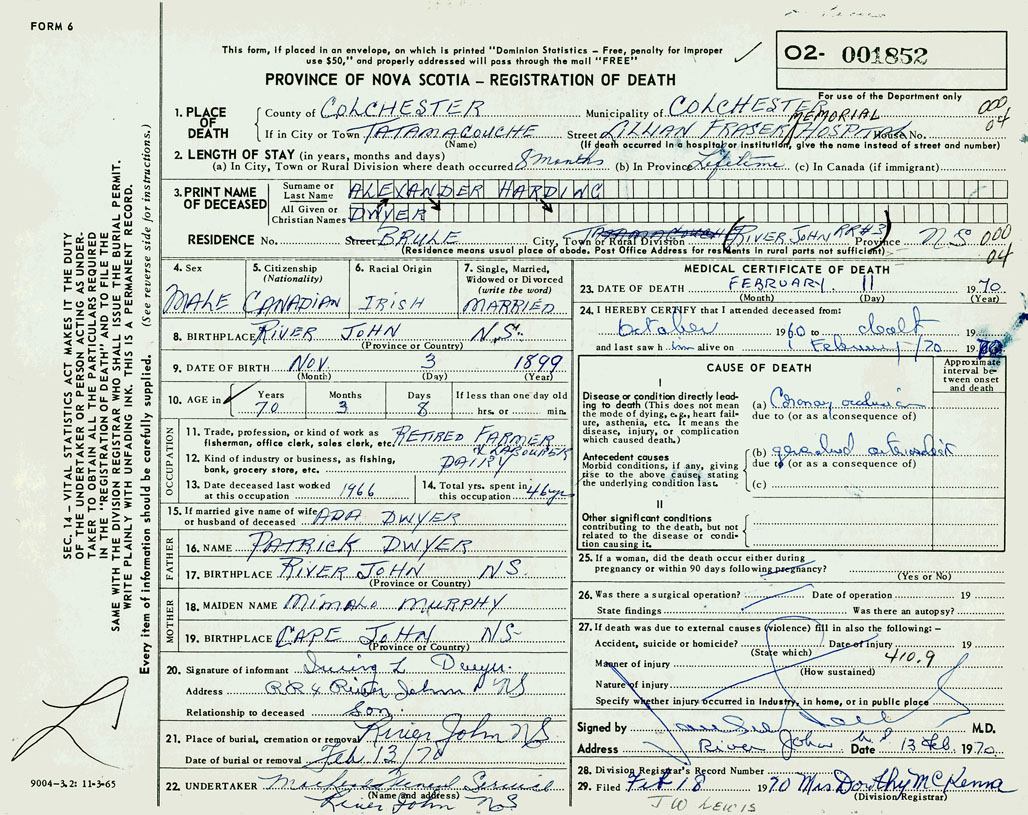 FORM 6
This form, if placed in an envelope, on which is printed "Dominion Statistics – Free, penalty for improper
use $50," and properly addressed will pass through the mail "FREE"
O2- 001852
PROVINCE OF NOVA SCOTIA – REGISTRATION OF DEATH
For use of the Department only
1. PLACE OF DEATH
County of COLCHESTER Municipality of COLCHESTER 000
If in City or Town TATAMAGOUCHE Street LILLIAN FRASER MEMORIAL HOSPITAL House No. 04
(Name) (If death occurred in a hospital or institution, give the name instead of street and number)
2. LENGTH OF STAY (in years, months and days)
(a) In City, Town or Rural Division where death occurred 8 months (b) In Province Lifetime (c) In Canada (if immigrant)
3. PRINT NAME OF DECEASED
Surname or Last Name ALEXANDER HARDING
All Given or Christian Names DWYER
RESIDENCE No. Street BRULE City, Town or Rural Division TATAMAGOUCHE (RIVER JOHN RR#3) Province N S 000
(Residence means usual place of abode. Post Office Address for residents in rural parts not sufficient) 04
4. Sex
MALE
5. Citizenship
(Nationality)
CANADIAN
6. Racial Origin
IRISH
7. Single, Married, Widowed or Divorced
(write the word)
MARRIED
8. BIRTHPLACE RIVER JOHN N.S.
(Province or Country)
9. DATE OF BIRTH NOV. 3 1899
(Month) (Day) (Year)
10. AGE in Years Months Days If less than one day old
70 3 8 hrs. or min.
OCCUPATION
11. Trade, profession, or kind of work as
fisherman, office clerk, sales clerk, etc. RETIRED FARMER
& LABOURER
12. Kind of industry or business, as fishing,
bank, grocery store, etc. DAIRY
13. Date deceased last worked
at this occupation 1966
14. Total yrs. spent in
this occupation 46 yrs
15. If married give name of wife
or husband of deceased ADA DWYER
FATHER
16. NAME PATRICK DWYER
17. BIRTHPLACE RIVER JOHN NS.
(Province or Country)
MOTHER
18. MAIDEN NAME MURPHY
19. BIRTHPLACE CAPE JOHN NS-
(Province or Country)
20. Signature of informant L Dwyer.
Address RR 4 River John NS
Relationship to deceased Son.
21. Place of burial, cremation or removal River John NS
Date of burial or removal Feb 13/70
22. UNDERTAKER
(Name and address) River John NS
MEDICAL CERTIFICATE OF DEATH
23. DATE OF DEATH FEBRUARY 11 1970
(Month) (Day) (Year)
24. I HEREBY CERTIFY that I attended deceased from:
October 1960 to death 19
and last saw him alive on 1 February /70 1970
CAUSE OF DEATH
Approximate interval between onset and death
I
Disease or condition directly leading to death (This does not mean the mode of dying, e.g., heart failure, asthenia, etc. It means the disease, injury, or complication which caused death.)
(a) Coronary occlusion
due to (or as a consequence of)
Antecedent causes
Morbid conditions, if any, giving rise to the above cause, stating the underlying condition last.
(b) generalized
due to (or as a consequence of)
(c)
II
Other significant conditions
contributing to the death, but not related to the disease or condition causing it.
25. If a woman, did the death occur either during
pregnancy or within 90 days following pregnancy?
(Yes or No)
26. Was there a surgical operation? Date of operation 19
State findings Was there an autopsy?
27. If death was due to external causes (violence) fill in also the following:–
Accident, suicide or homicide? Date of injury 19
(State which)
Manner of injury 410.9
(How sustained)
Nature of injury
Specify whether injury occurred in Industry, in home, or in public place
Signed by M.D.
Address River John N S Date 13 Feb. 1970
28. Division Registrar's Record Number
29. Filed Feb 18 1970 Mrs. Dorothy McKenna
(Division/Registrar)
J W LEWIS
9004–3.2: 11-3-65
SEC. 14 – VITAL STATISTICS ACT MAKES IT THE DUTY
OF THE UNDERTAKER OR PERSON ACTING AS UNDER-
TAKER TO OBTAIN ALL THE PARTICULARS REQUIRED
IN THE "REGISTRATION OF DEATH" AND TO FILE THE
SAME WITH THE DIVISION REGISTRAR WHO SHALL ISSUE THE BURIAL PERMIT.
WRITE PLAINLY WITH UNFADING INK. THIS IS A PERMANENT RECORD.
Every item of information should be carefully supplied. (See reverse side for instructions.)